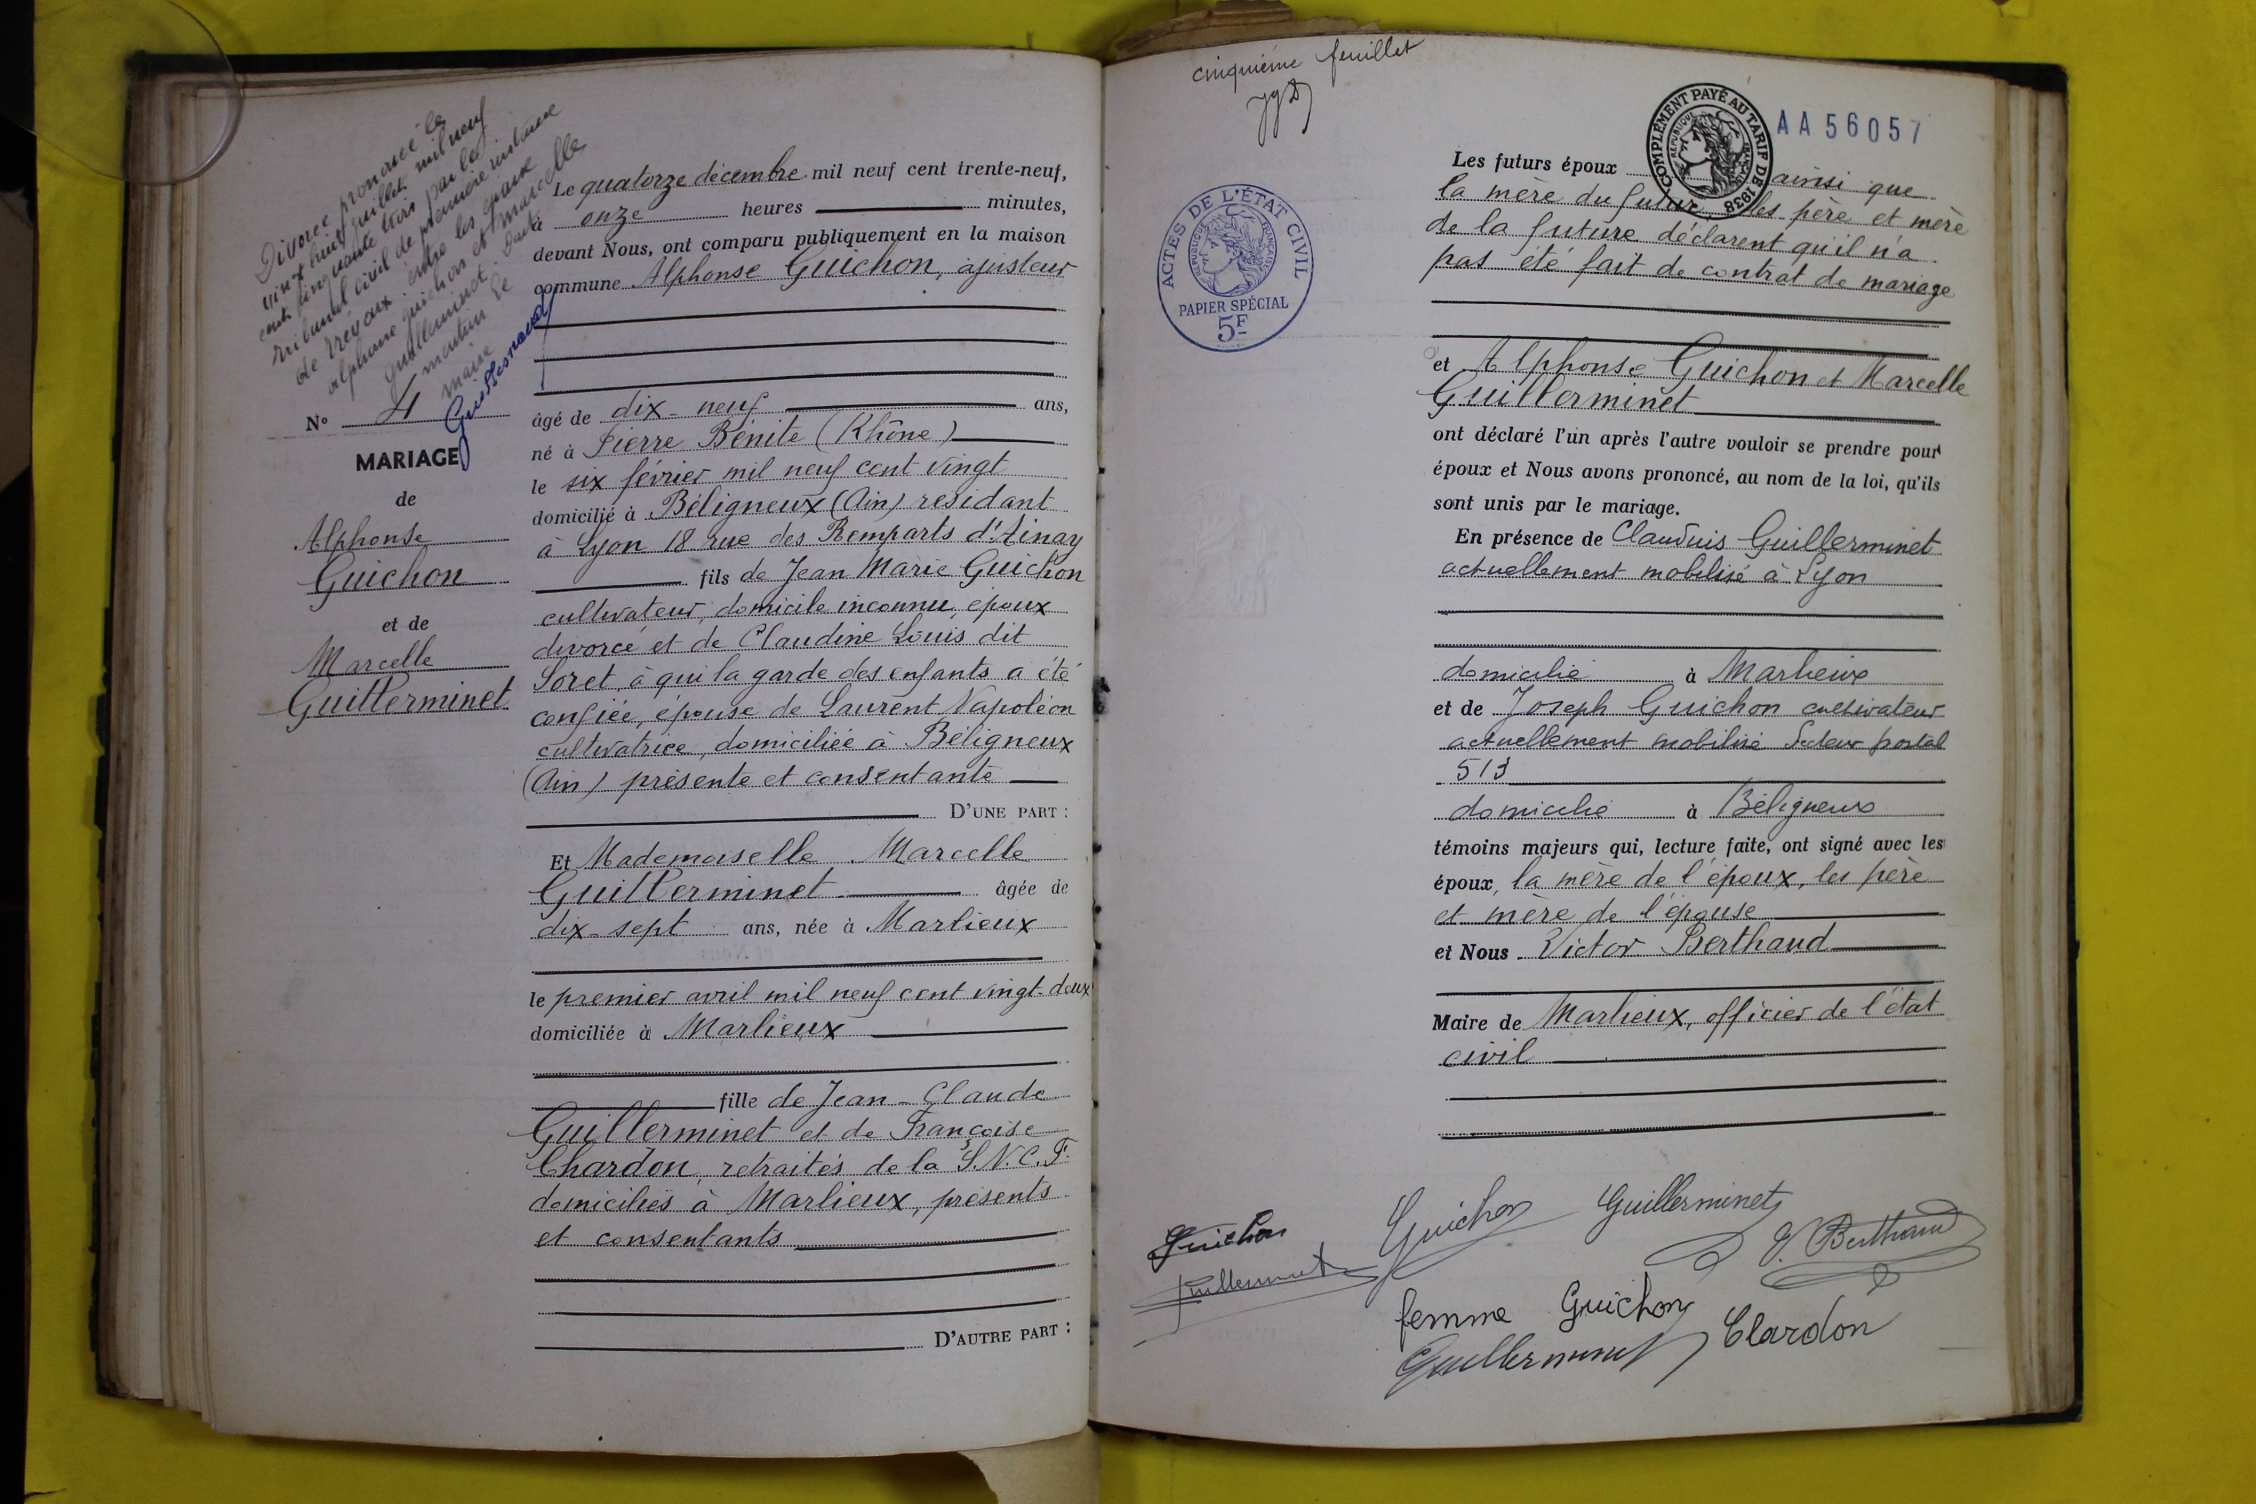 Divorce prononcé le
vingt huit juillet mil neuf
cent cinquante trois par le
tribunal civil de première instance
de Trévoux entre les époux
alphonse guichon et marcelle
guillerminet. Dont
mention le
maire
N° 4
MARIAGE
de
Alphonse
Guichon
et de
Marcelle
Guillerminet
Le quatorze décembre mil neuf cent trente-neuf,
à onze heures minutes,
devant Nous, ont comparu publiquement en la maison
commune Alphonse Guichon, ajusteur
âgé de dix-neuf ans,
né à Pierre Bénite (Rhône)
le six février mil neuf cent vingt
domicilié à Béligneux (Ain) résidant
à Lyon 18 rue des Remparts d'Ainay
fils de Jean Marie Guichon
cultivateur, domicile inconnu, époux
divorcé et de Claudine Louis dit
Loret, à qui la garde des enfants a été
confiée, épouse de Laurent Napoléon
cultivatrice, domiciliée à Béligneux
(Ain) présente et consentante
D'UNE PART :
Et Mademoiselle Marcelle
Guillerminet âgée de
dix-sept ans, née à Marlieux
le premier avril mil neuf cent vingt-deux
domiciliée à Marlieux
fille de Jean-Claude
Guillerminet et de Françoise
Chardon, retraités de la S.N.C.F.
domiciliés à Marlieux, présents
et consentants
D'AUTRE PART :
cinquième feuillet
ACTES DE L'ÉTAT CIVIL
RÉPUBLIQUE FRANÇAISE
PAPIER SPÉCIAL
5F
COMPLÉMENT PAYÉ AU TARIF DE 1938
RÉPUBLIQUE FRANÇAISE
AA56057
Les futurs époux ainsi que
la mère du futur, les père et mère
de la future déclarent qu'il n'a
pas été fait de contrat de mariage
et Alphonse Guichon et Marcelle
Guillerminet
ont déclaré l'un après l'autre vouloir se prendre pour
époux et Nous avons prononcé, au nom de la loi, qu'ils
sont unis par le mariage.
En présence de Claudius Guillerminet
actuellement mobilisé à Lyon
domicilié à Marlieux
et de Joseph Guichon cultivateur
actuellement mobilisé Secteur postal
513
domicilié à Béligneux
témoins majeurs qui, lecture faite, ont signé avec les
époux, la mère de l'époux, les père
et mère de l'épouse
et Nous Victor Berthaud
Maire de Marlieux, officier de l'état
civil
Guichon Guichon Guillerminet
Guillerminet V. Berthaud
femme Guichon Chardon
Guillerminet